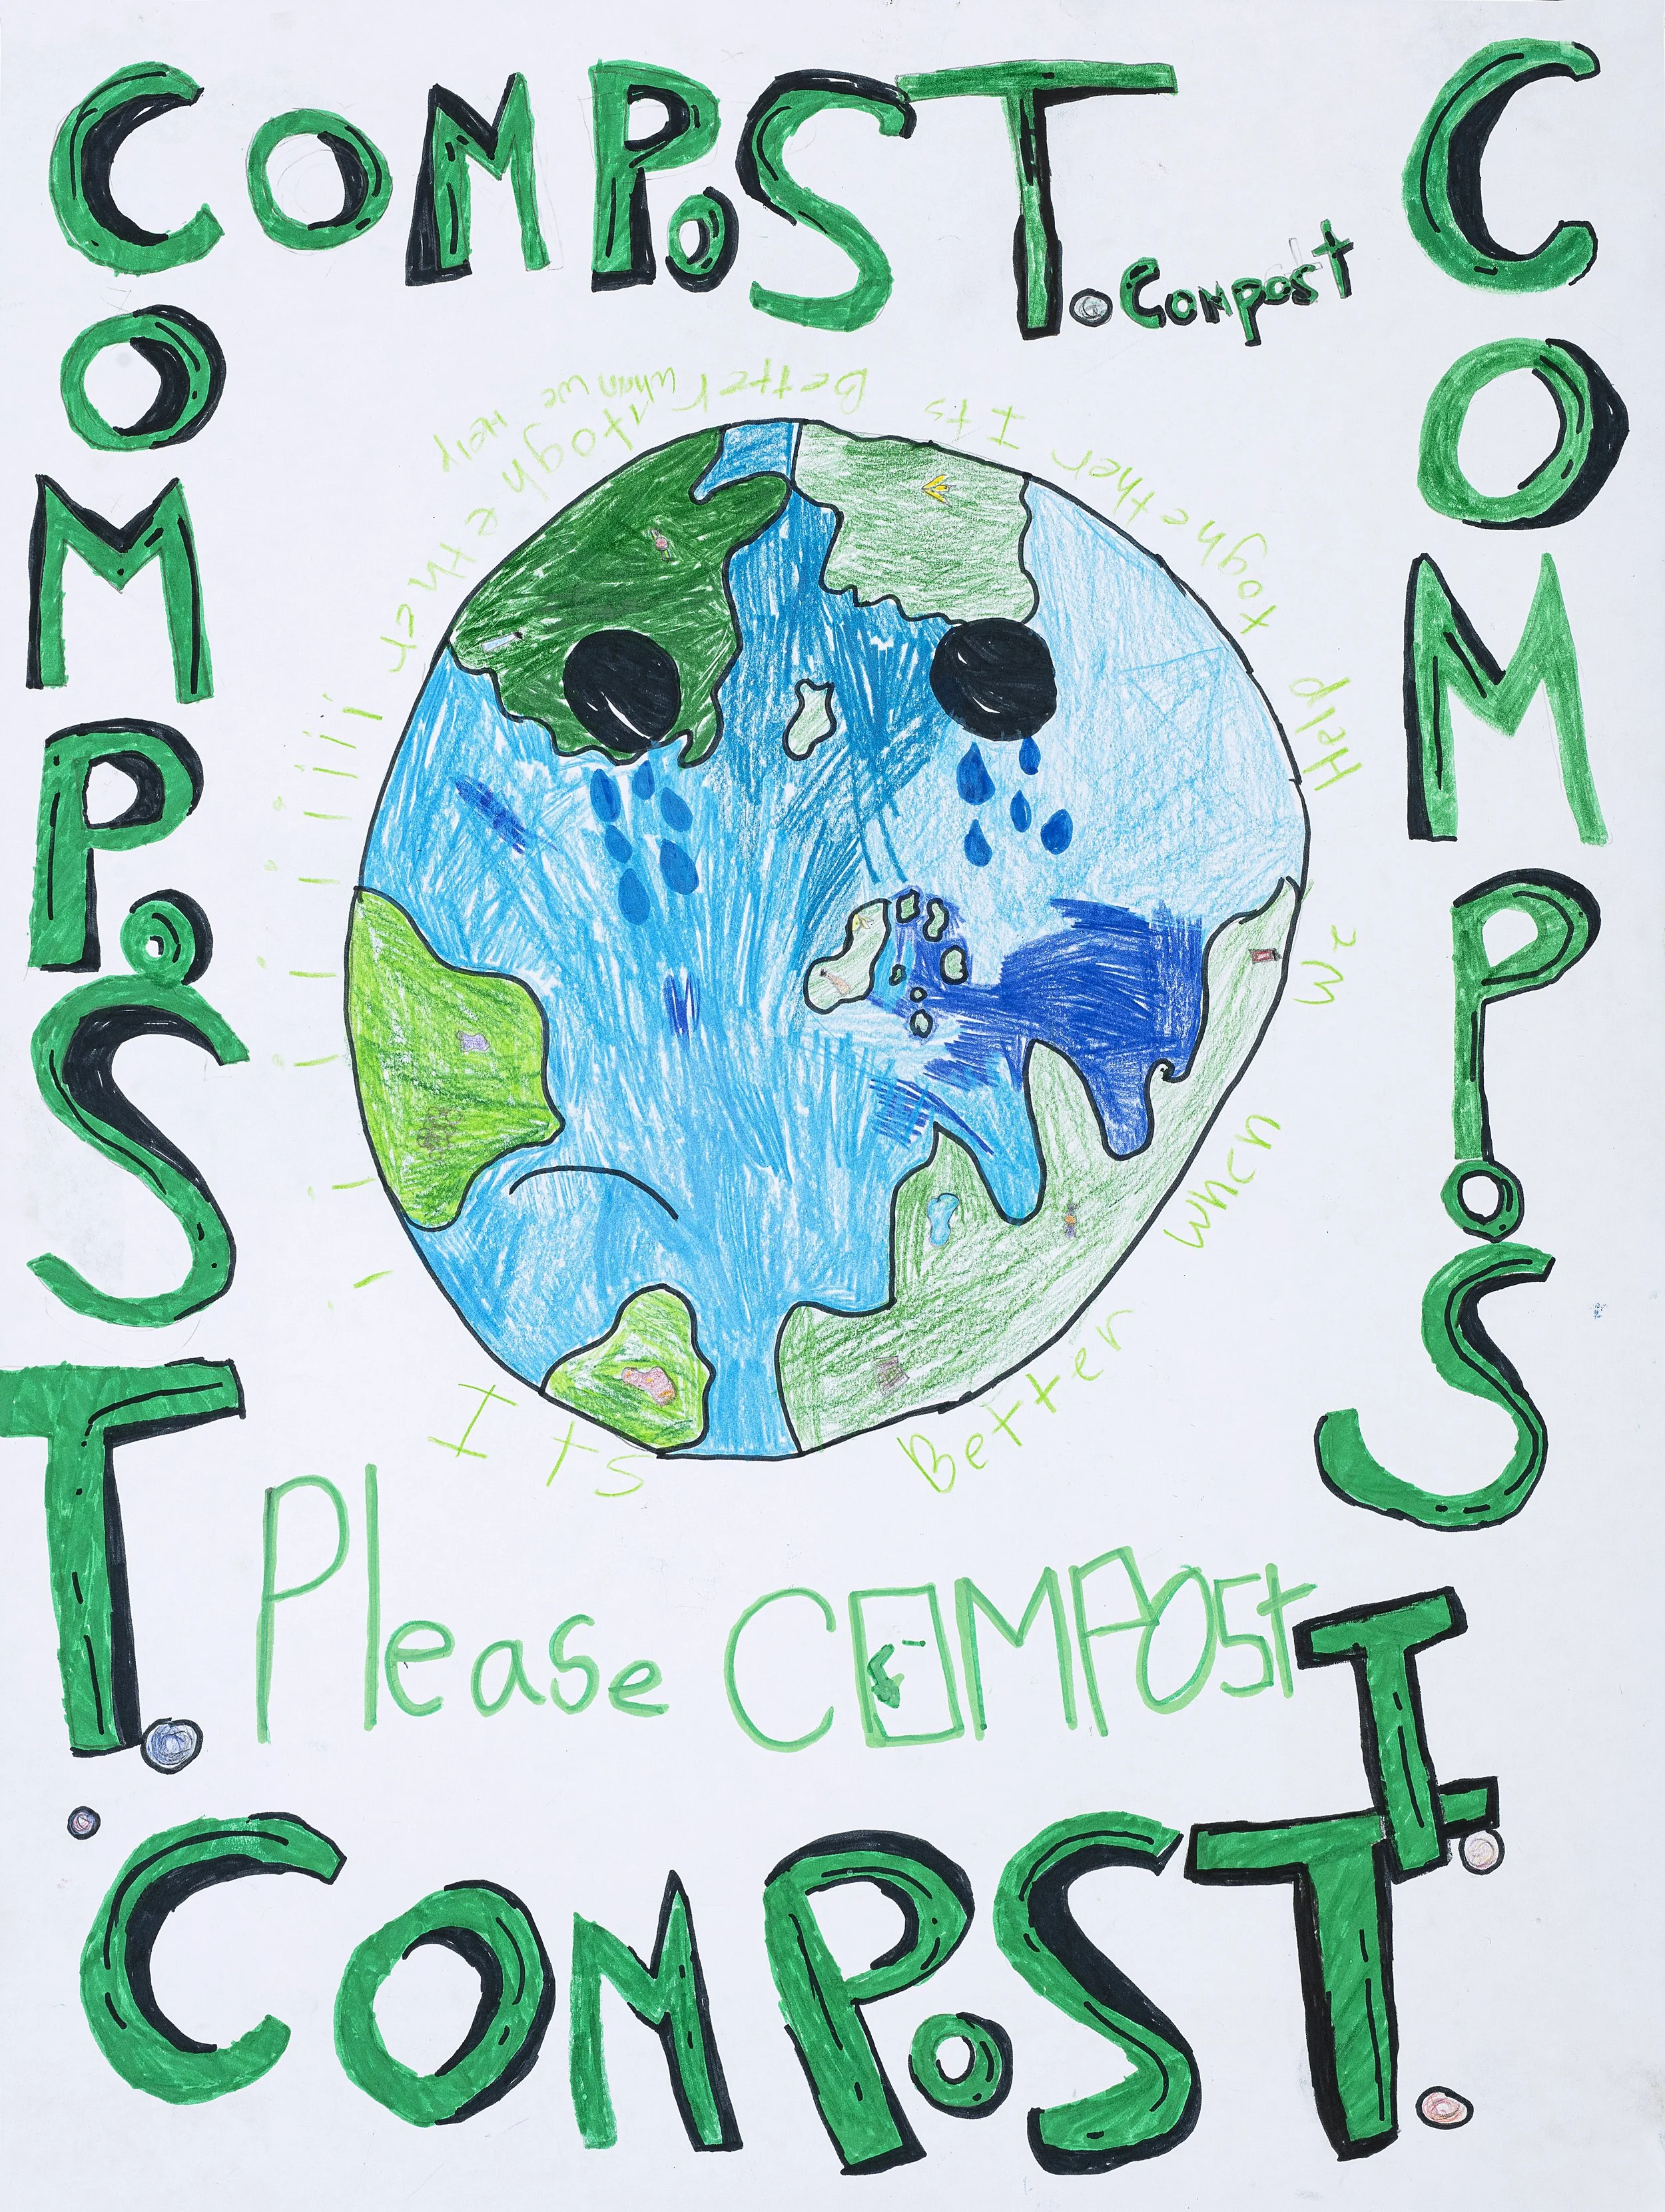 COMPOST.
Compost
COMPOST.
COMPOST.
Its Better when we Help toghether Its Better whan we Help toghether !!!!!!!!!!
Please COMPOST
COMPOST.